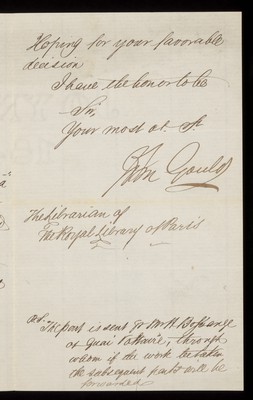 Hoping for your favorable
decision
I have the honor to be
Sir,
Your most ob. St
John Gould
The Librarian of
The Royal Library of Paris
The part is sent to Mr H. Bossange
at Quai Voltaire, through
whom if the work be taken
the subsequent parts will be
forwarded